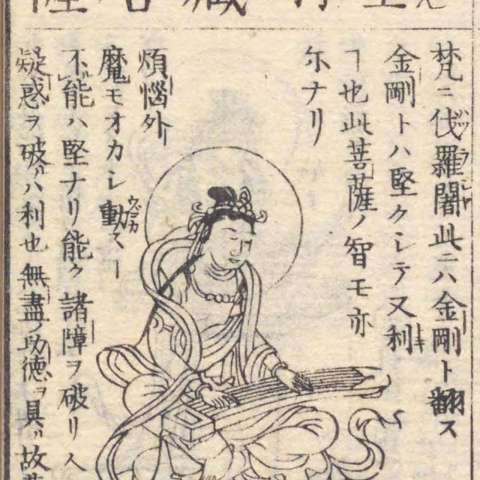 梵ニ伐羅闍此ニハ金剛ト翻ス
金剛トハ堅クシテ又利キ
ヿ也此菩薩ノ智モ亦
尓ナリ
煩惱外
魔モオカシ動スヿ
不能ハ堅ナリ能ク諸障ヲ破リ人
疑惑ヲ破ハ利也無盡ノ功徳ヲ具ハ故